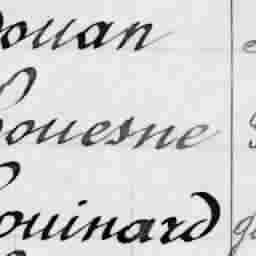 ouan
ouesne
ouinard